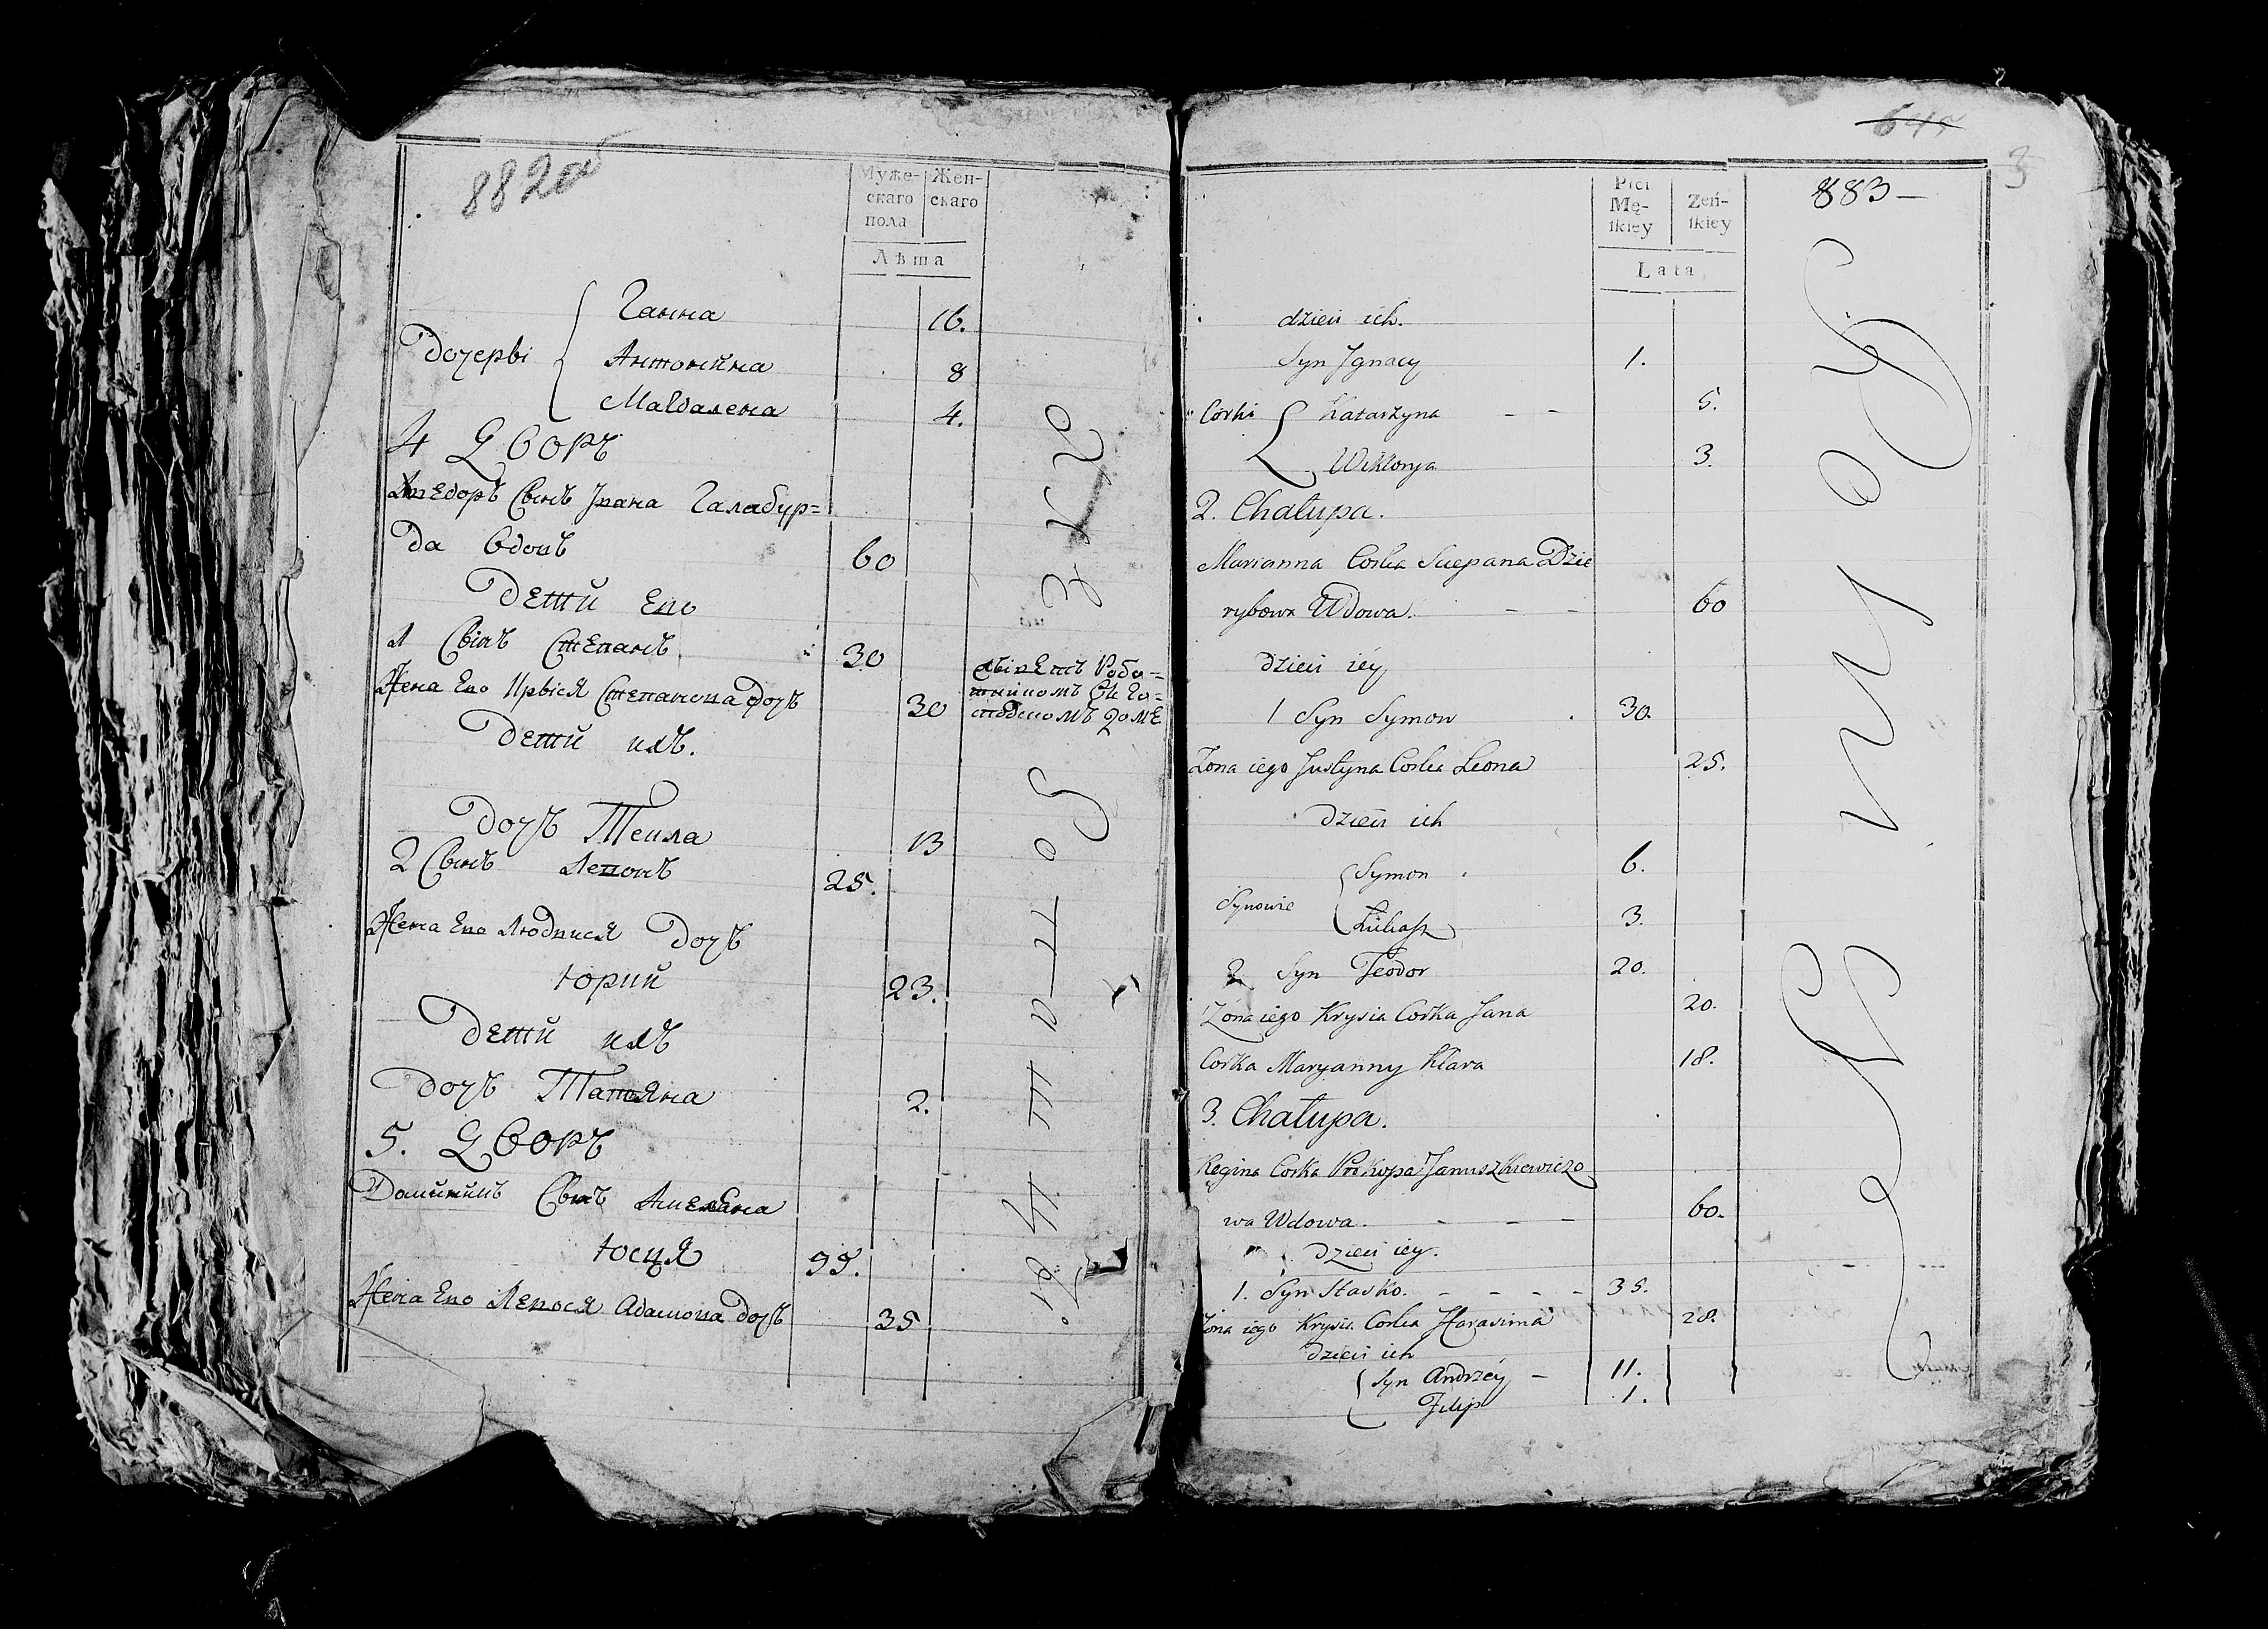 882об
Муже-
скаго
пола
Жен-
скаго
Лѣта
Ганна 16.
Дочерѣі
Антонина 8
Магдалена 4.
4 Дворъ
Ѳтедоръ Сынъ Ивана Галабур=
да Вдовъ 60
Дети Ево
1 Сынъ Степанъ 30
Жена Ево Крыся Степанова дочъ 30
Дети ихъ.
Дочъ Текла 13
2 Сынъ Левонъ 25.
Жена Ево Людвися Дочъ
Юрки 23.
Дети ихъ
Дочъ Татяна 2.
5. Дворъ
Доминикъ Сынъ
Юсця 55.
Жена Ево Левося Адамова Дочъ 35
645
3
Płci
Mę-
ſkiey
Żeń-
ſkiey
Lata
883—
dzieci ich.
Syn Jgnacy 1.
Corki Katarzyna 5.
Wiktorya 3.
2. Chałupa.
Marianna Corka Sciepana Dzie
rybowa Wdowa. 60
dzieci iéy
1 Syn Symon 30.
Zona iego Justyna Corka Leona 25.
dzieci ich
Symon 6.
Synowie
Łukaſz 3.
2 Syn Teodor 20.
Zona iego Krysia Corka Jana 20.
Corka Maryanny Klara 18.
3. Chałupa.
Regina Corka Prokopa Januszkiewiczo
wa Wdowa. 60.
dzieci iey.
1. Syn Stasko. 35.
Zona iego Krysia Corka Harasima 28.
dzieci ich
Syn Andrzéy 11.
Filip 1.